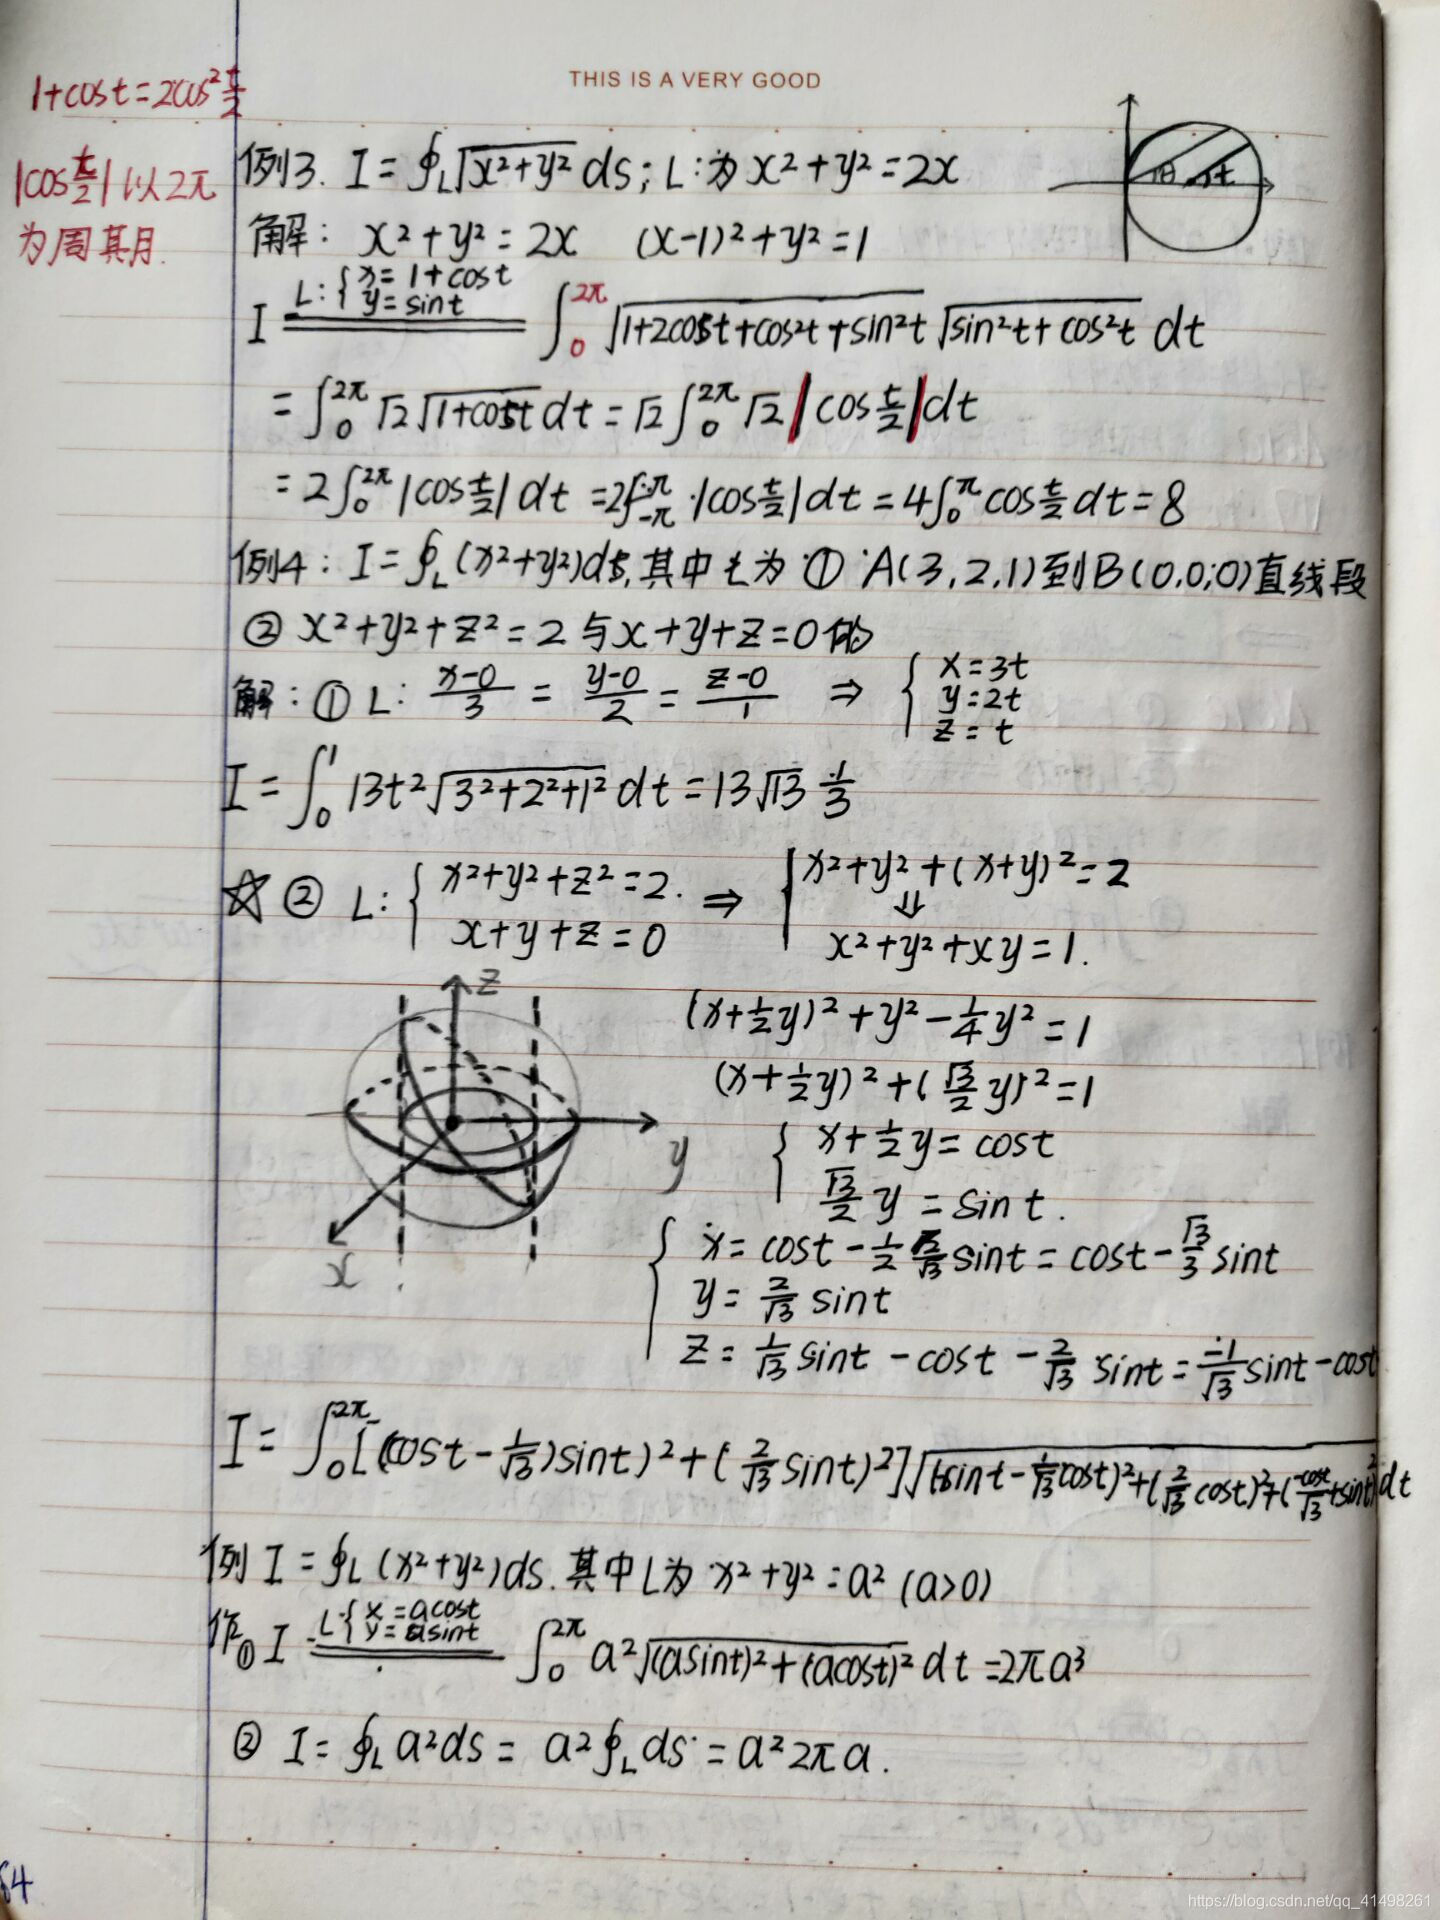 THIS IS A VERY GOOD
1+cost=2cos²t/2
|cos t/2| 以2π
为周期.
例3. I=∮_L√(x²+y²) ds; L:为 x²+y²=2x
θ t
解: x²+y²=2x (x-1)²+y²=1
I L:{x=1+cost y=sint ∫₀^2π √(1+2cost+cos²t+sin²t) √(sin²t+cos²t) dt
=∫₀^2π √2√(1+cost) dt=√2∫₀^2π √2|cos t/2|dt
=2∫₀^2π |cos t/2| dt =2∫_-π^π |cos t/2| dt=4∫₀^π cos t/2 dt=8
例4: I=∮_L (x²+y²)ds,其中L为 ① A(3,2,1)到B(0,0,0)直线段
② x²+y²+z²=2与x+y+z=0的
解: ① L: (x-0)/3 = (y-0)/2 = (z-0)/1 ⇒ { x=3t y=2t z=t
I=∫₀^1 13t²√(3²+2²+1²) dt=13√13 1/3
☆② L:{ x²+y²+z²=2. x+y+z=0 ⇒ { x²+y²+(x+y)²=2
⇓
x²+y²+xy=1.
z
y
x
(x+1/2y)²+y²-1/4y²=1
(x+1/2y)²+(√3/2 y)²=1
{ x+1/2y=cost
√3/2 y=sint.
{ x=cost-1/2 2/√3 sint=cost-√3/3 sint
y=2/√3 sint
z=1/√3 sint-cost-2/√3 sint=-1/√3 sint-cost
I=∫₀^2π[(cost-1/√3)sint)²+(2/√3 sint)²]√((-sint-1/√3cost)²+(2/√3 cost)²+(-cost/√3+sint)²) dt
例 I=∮_L (x²+y²)ds.其中L为 x²+y²=a² (a>0)
① I L{x=acost y=asint ∫₀^2π a²√((asint)²+(acost)²) dt=2πa³
② I=∮_L a²ds= a²∮_L ds=a²2πa.
64
https://blog.csdn.net/qq_41498261